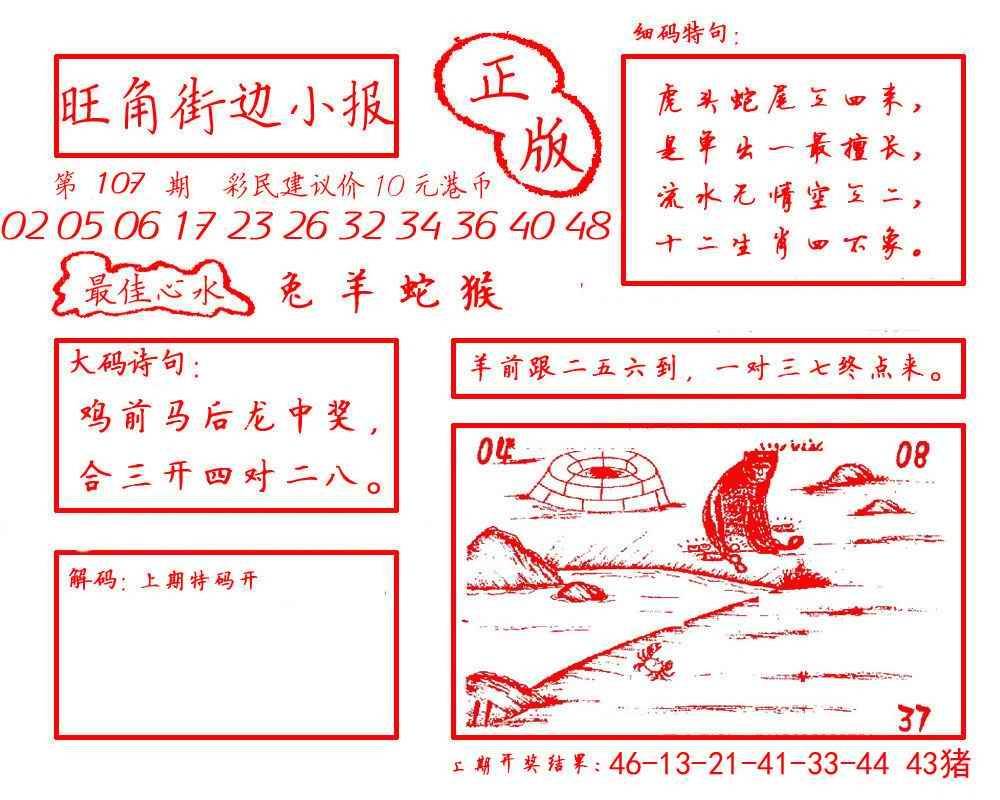 细码特句：
旺角街边小报
正版
虎头蛇尾叾四来，
是单出一最擅长，
流水无情空叾二，
十二生肖四不象。
第 107 期 彩民建议价10元港币
02 05 06 17 23 26 32 34 36 40 48
最佳心水 兔羊蛇猴
大码诗句：
鸡前马后龙中奖，
合三开四对二八。
羊前跟二五六到，一对三七终点来。
04 08
11 37
解码：上期特码开
上期开奖结果：46-13-21-41-33-44 43猪